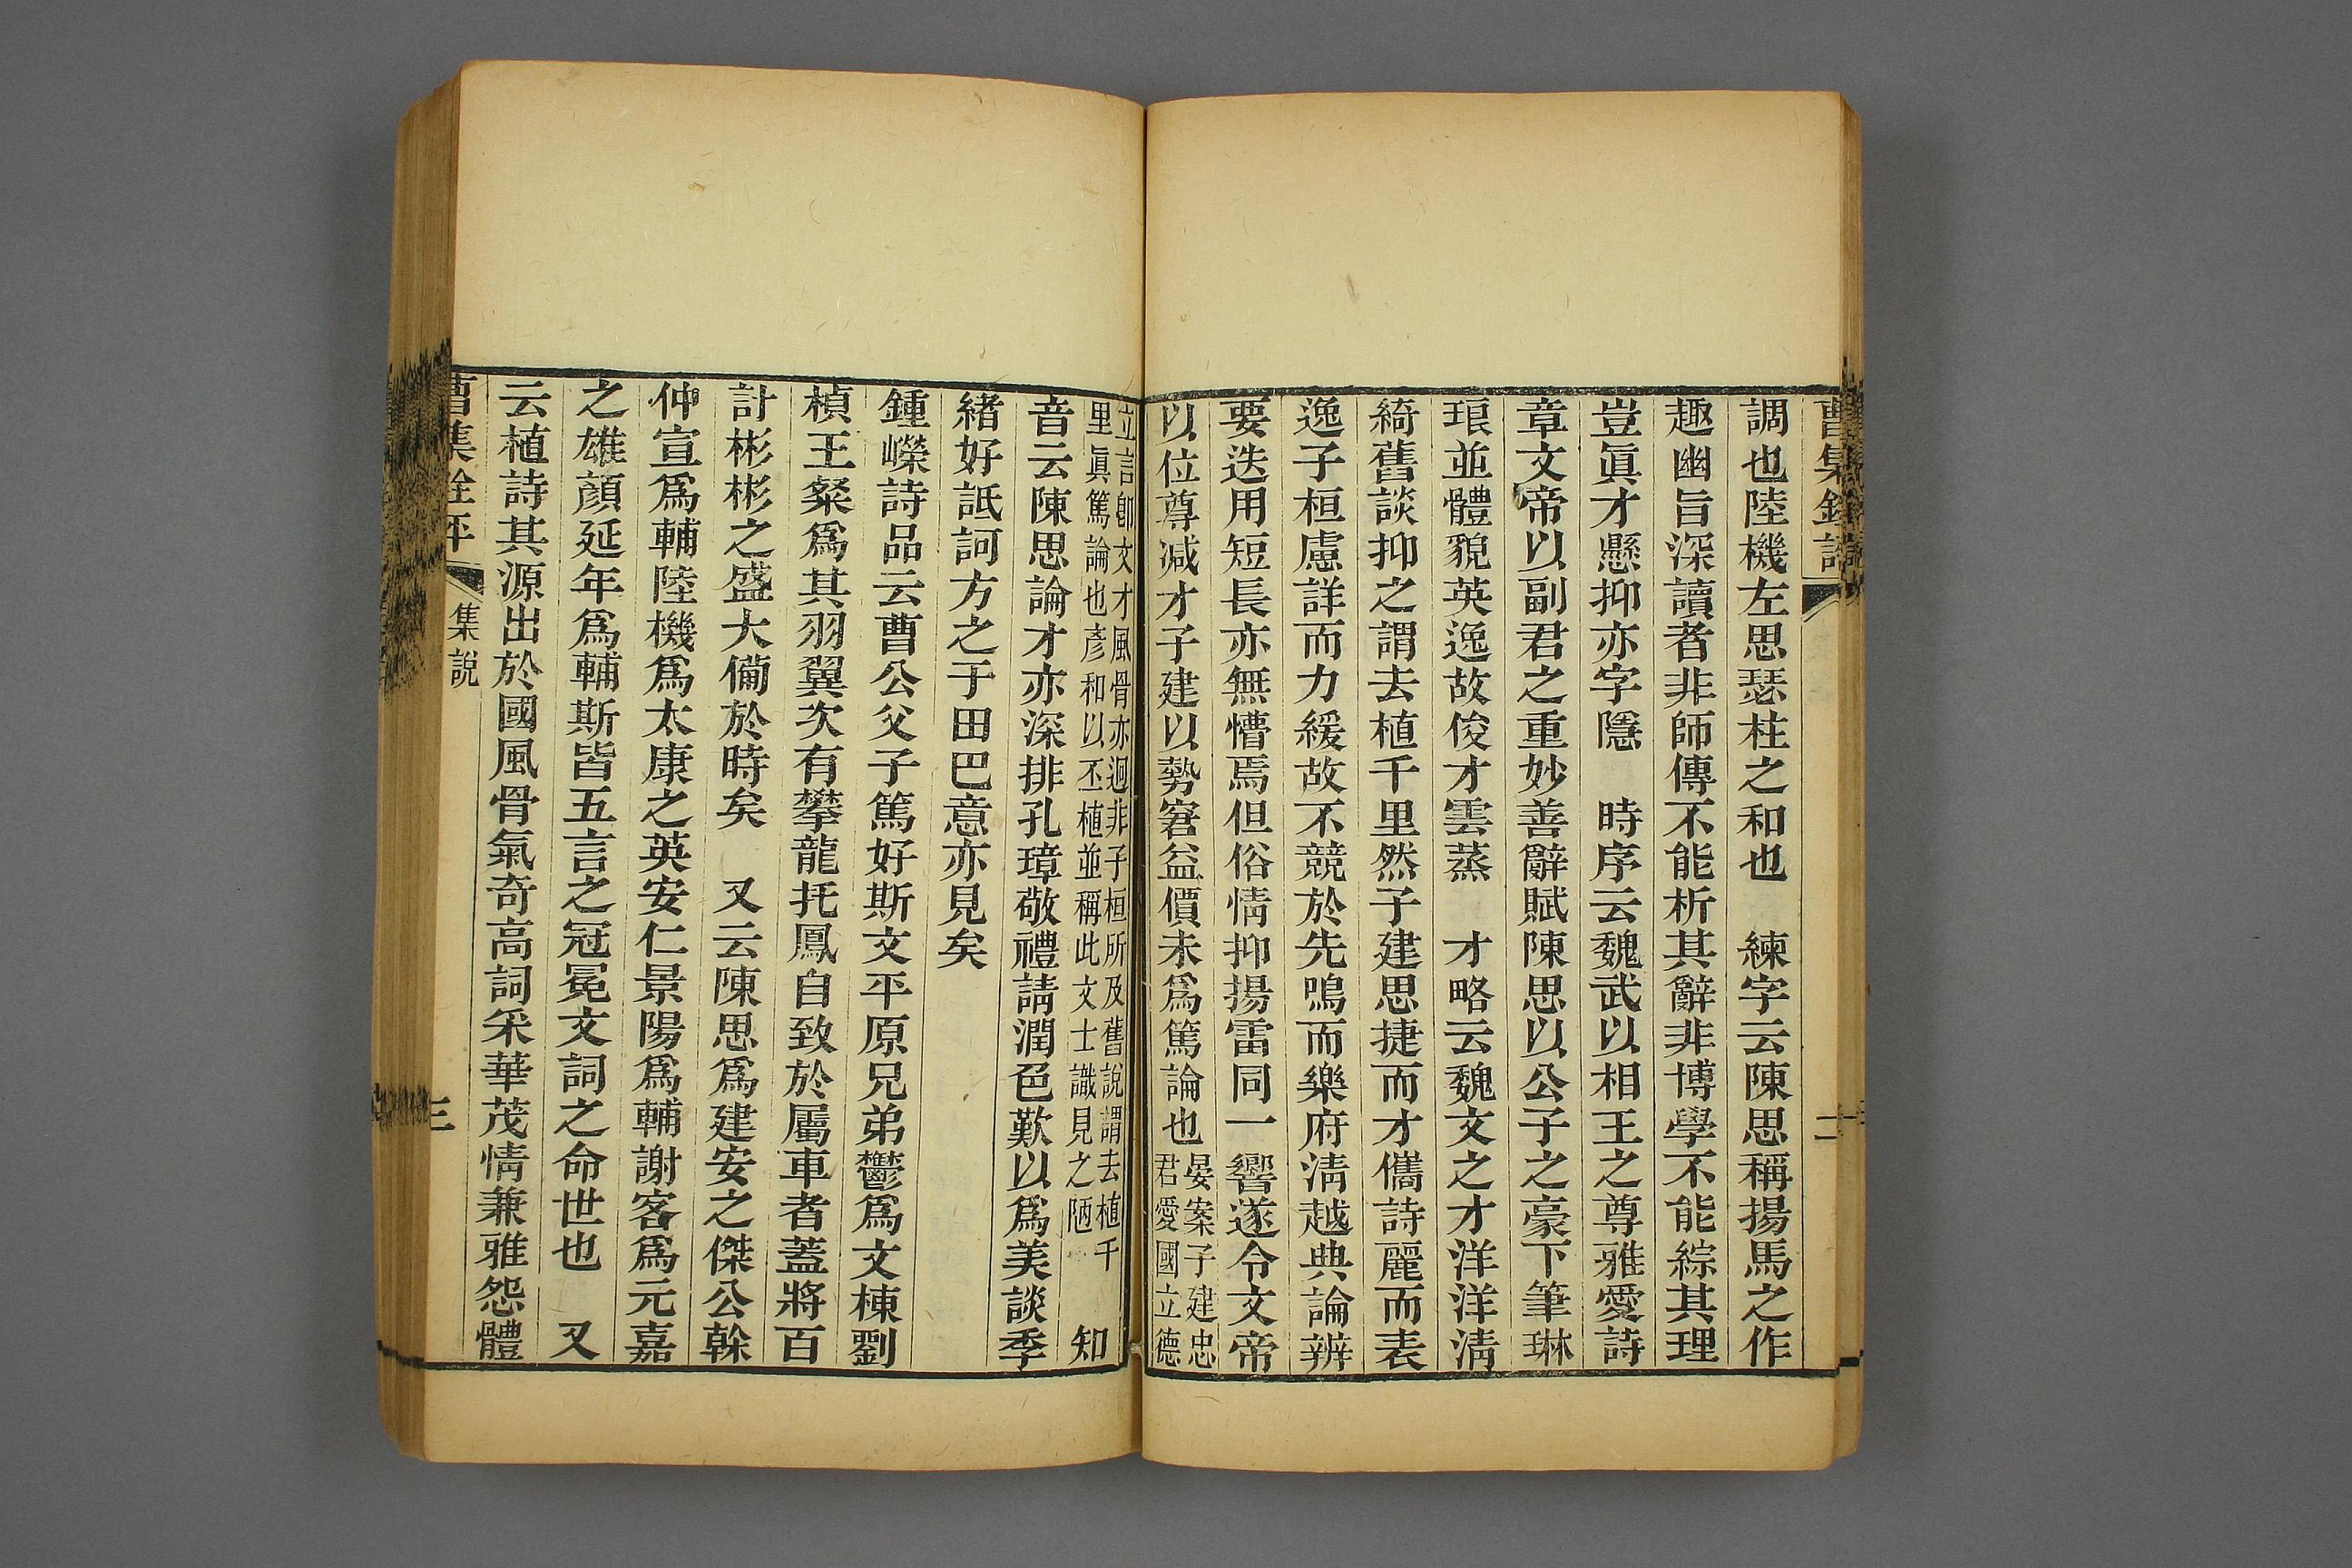 曹集銓評
二
調也陸機左思瑟柱之和也　練字云陳思稱揚馬之作
趣幽旨深讀者非師傳不能析其辭非博學不能綜其理
豈眞才懸抑亦字隱　時序云魏武以相王之尊雅愛詩
章文帝以副君之重妙善辭賦陳思以公子之豪下筆琳
琅並體貌英逸故俊才雲蒸　才略云魏文之才洋洋淸
綺舊談抑之謂去植千里然子建思捷而才儁詩麗而表
逸子桓慮詳而力緩故不競於先鳴而樂府淸越典論辨
要迭用短長亦無懵焉但俗情抑揚雷同一響遂令文帝
以位尊減才子建以勢窘益價未爲篤論也
晏案子建忠
君愛國立德
立言卽文才風骨亦迥非子桓所及舊說謂去植千
里眞篤論也彥和以丕植並稱此文士識見之陋
知
音云陳思論才亦深排孔璋敬禮請潤色歎以爲美談季
緒好詆訶方之于田巴意亦見矣
鍾嶸詩品云曹公父子篤好斯文平原兄弟鬱爲文棟劉
楨王粲爲其羽翼次有攀龍托鳳自致於屬車者蓋將百
計彬彬之盛大備於時矣　又云陳思爲建安之傑公幹
仲宣爲輔陸機爲太康之英安仁景陽爲輔謝客爲元嘉
之雄顏延年爲輔斯皆五言之冠冕文詞之命世也　又
云植詩其源出於國風骨氣奇高詞采華茂情兼雅怨體
曹集銓平
集說
三